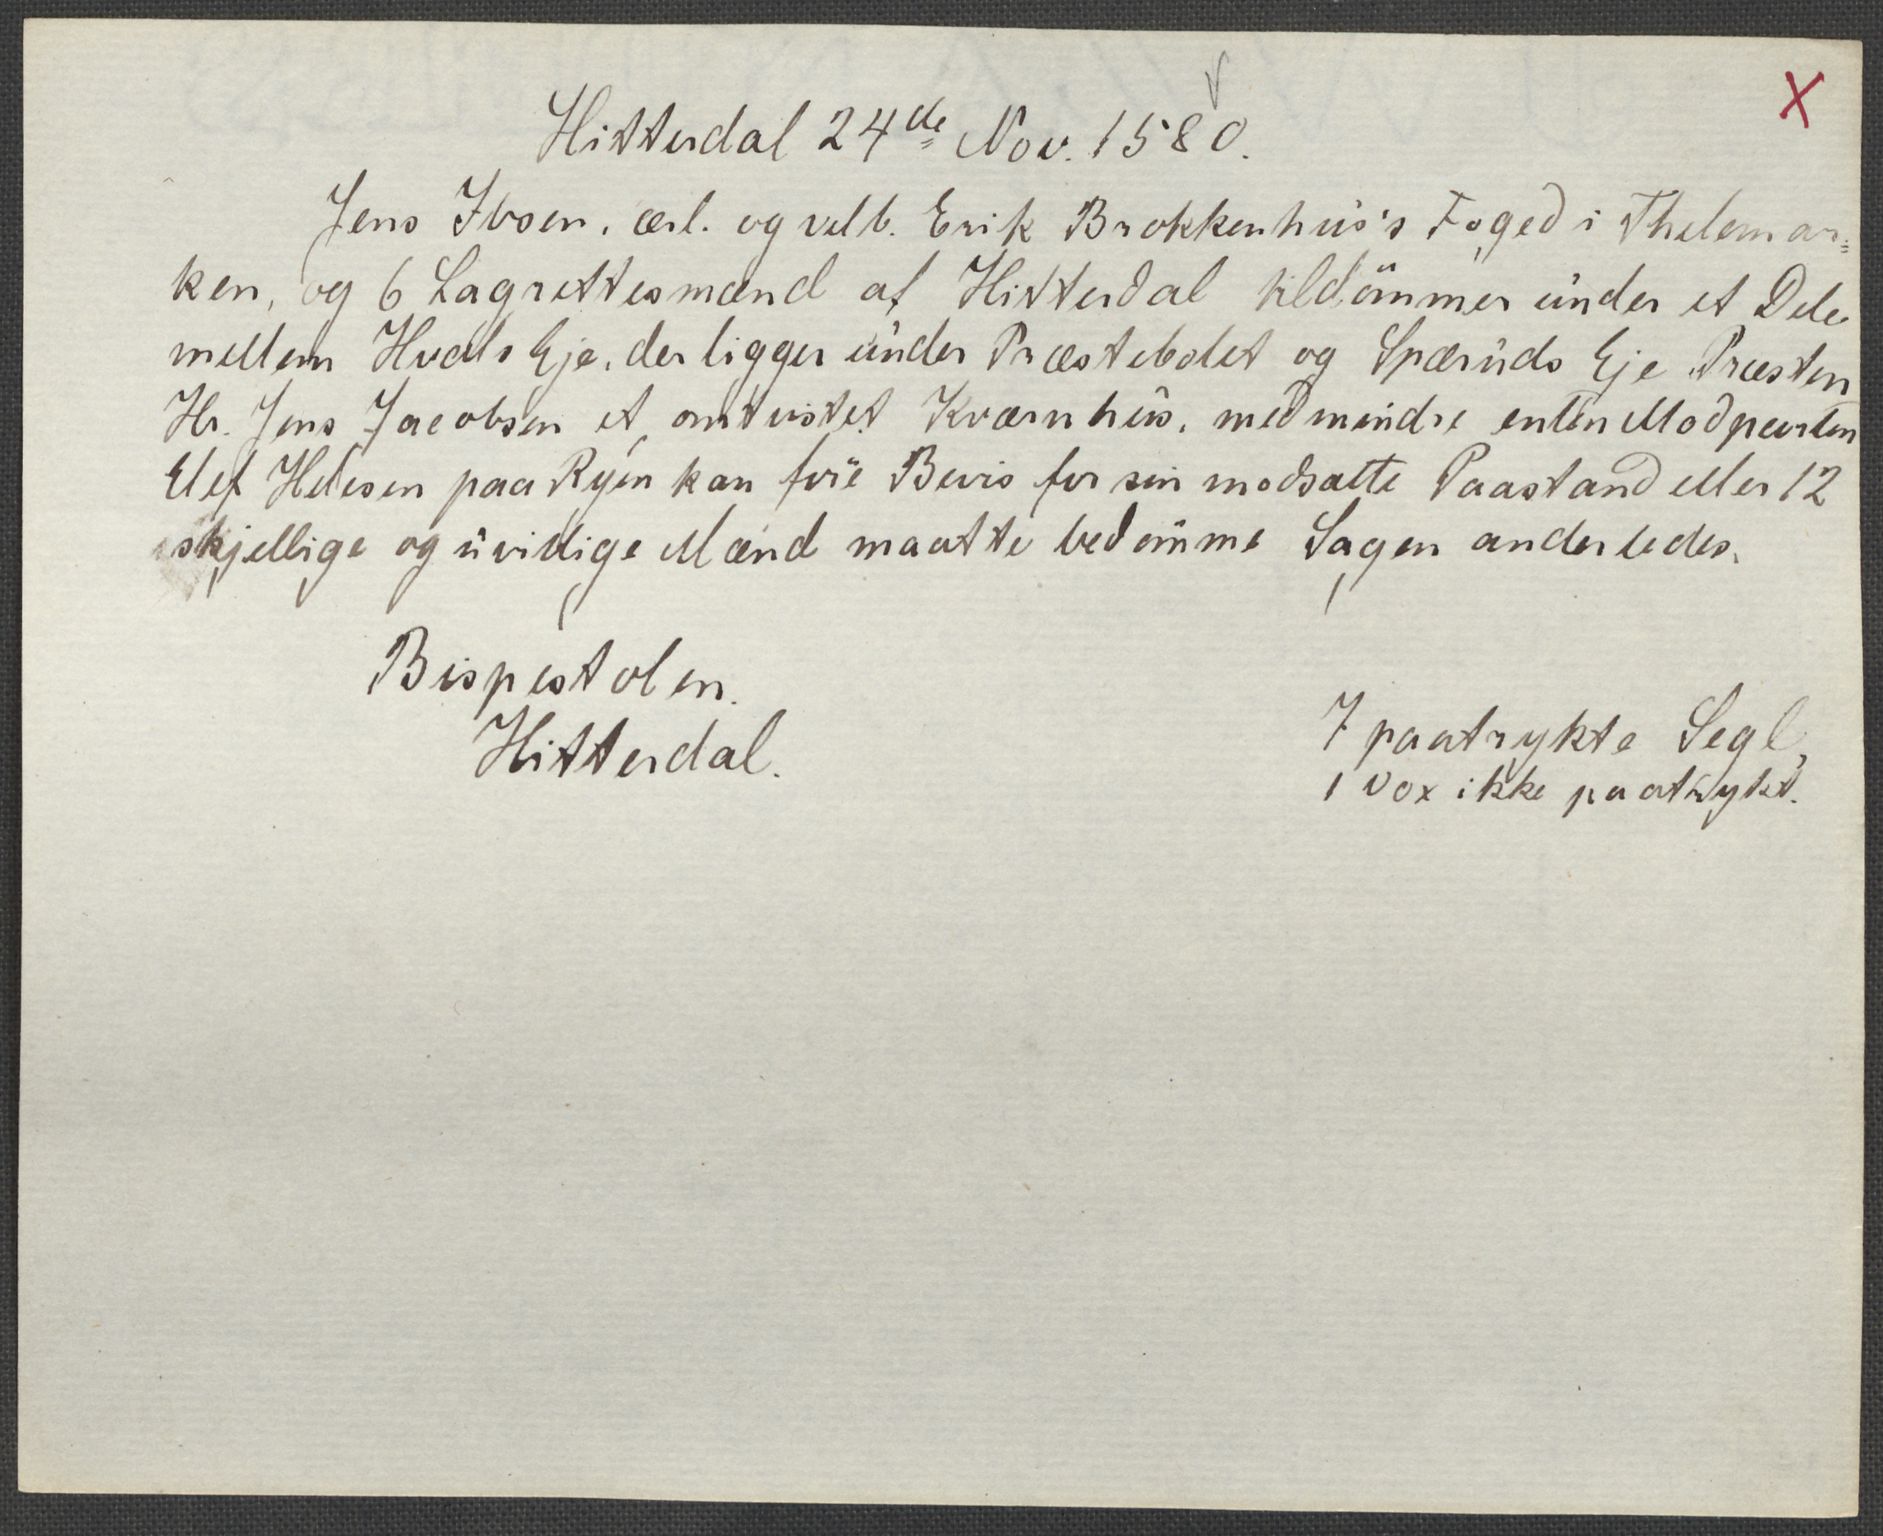 X
Hitterdal 24de Nov. 1580.
Jens Ibsen, ærl. og velb. Erik Brokkenhus's Foged i Thelemar=
ken, og 6 Lagrettesmænd af Hitterdal tildömmer under et Dele
mellem Hvals Eje, der ligger under Præstebolet og Spæruds Eje Præsten
Hr. Jens Jacobsen et omtvistet Kværnhus, medmindre enten Modparten
Elef Helesen paa Ryen kan före Bevis for sin modsatte Paastand eller 12
skjellige og uvillige Mænd maatte bedömme Sagen anderledes.
Bispestolen.
Hitterdal.
7 paatrykte Segl,
1 Vox ikke paatrykt.